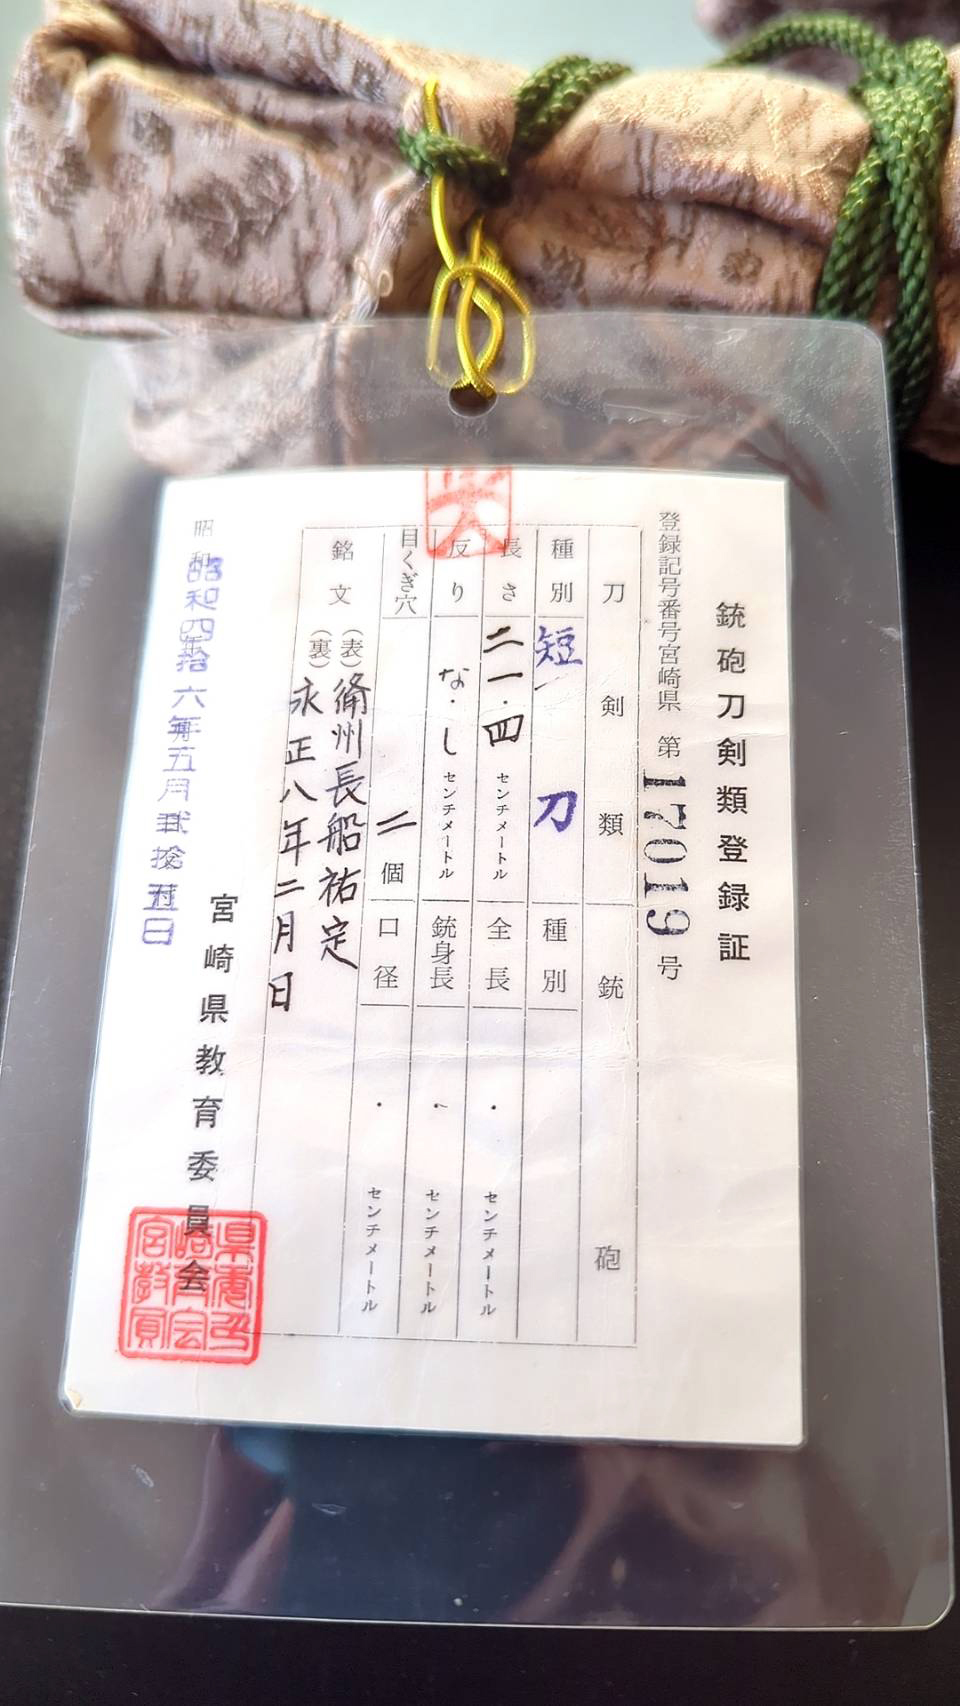 銃砲刀剣類登録証
登録記号番号宮崎県 第17019号
刀剣類
種別 短刀
長さ 二一.四 センチメートル
反り なし センチメートル
目くぎ穴 二個
銘文 (表) 備州長船祐定
(裏) 永正八年二月日
銃砲
種別
全長 . センチメートル
銃身長 センチメートル
口径 . センチメートル
昭和四拾六年五月弐拾五日
宮崎県教育委員会